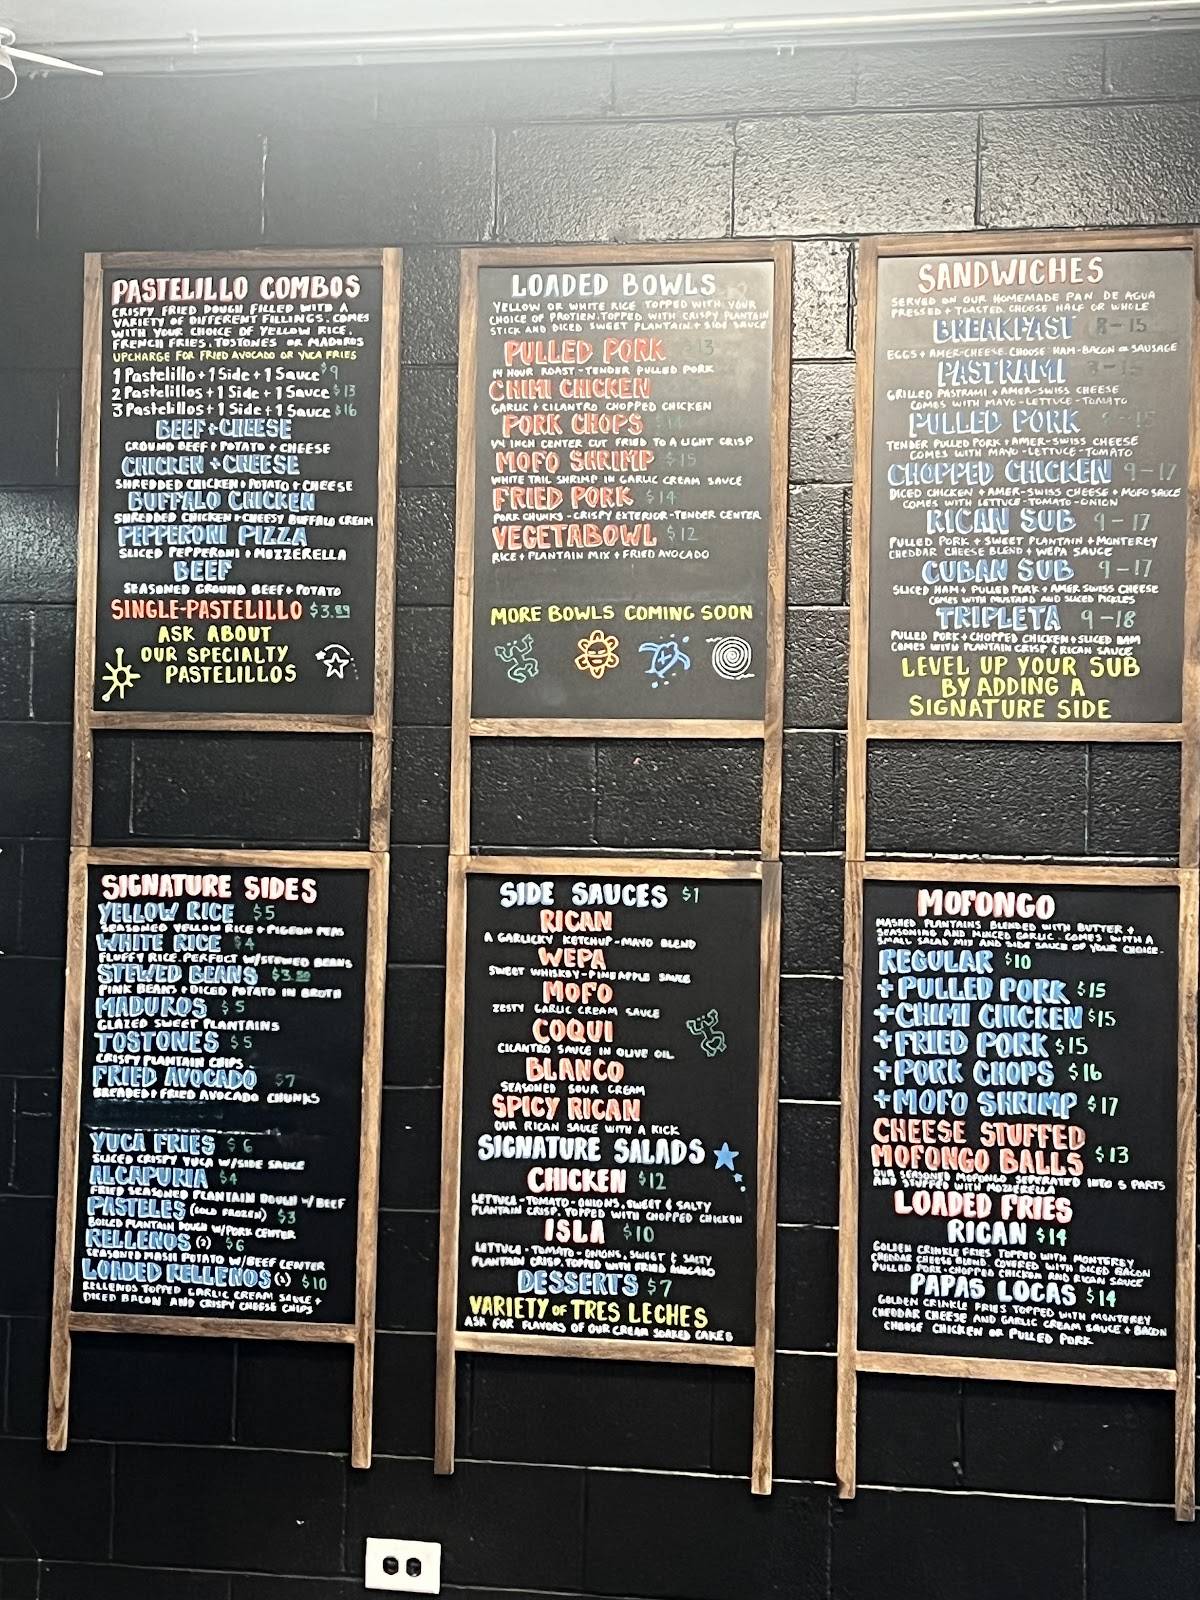 PASTELILLO COMBOS
CRISPY FRIED DOUGH FILLED WITH A
VARIETY OF DIFFERENT FILLINGS. COMES
WITH YOUR CHOICE OF YELLOW RICE,
FRENCH FRIES, TOSTONES OR MADUROS
UPCHARGE FOR FRIED AVOCADO OR YUCA FRIES
1 Pastelillo + 1 Side + 1 Sauce $9
2 Pastelillos + 1 Side + 1 Sauce $13
3 Pastelillos + 1 Side + 1 Sauce $16
BEEF + CHEESE
GROUND BEEF + POTATO + CHEESE
CHICKEN + CHEESE
SHREDDED CHICKEN + POTATO + CHEESE
BUFFALO CHICKEN
SHREDDED CHICKEN + CHEESY BUFFALO CREAM
PEPPERONI PIZZA
SLICED PEPPERONI + MOZZERELLA
BEEF
SEASONED GROUND BEEF + POTATO
SINGLE-PASTELILLO $3.89
ASK ABOUT
OUR SPECIALTY
PASTELILLOS
LOADED BOWLS
YELLOW OR WHITE RICE TOPPED WITH YOUR
CHOICE OF PROTIEN. TOPPED WITH CRISPY PLANTAIN
STICK AND DICED SWEET PLANTAIN. + SIDE SAUCE
PULLED PORK $13
14 HOUR ROAST - TENDER PULLED PORK
CHIMI CHICKEN
GARLIC + CILANTRO CHOPPED CHICKEN
PORK CHOPS
1/4 INCH CENTER CUT FRIED TO A LIGHT CRISP
MOFO SHRIMP $15
WHITE TAIL SHRIMP IN GARLIC CREAM SAUCE
FRIED PORK $14
PORK CHUNKS - CRISPY EXTERIOR - TENDER CENTER
VEGETABOWL $12
RICE + PLANTAIN MIX + FRIED AVOCADO
MORE BOWLS COMING SOON
SANDWICHES
SERVED ON OUR HOMEMADE PAN DE AGUA
PRESSED + TOASTED. CHOOSE HALF OR WHOLE
BREAKFAST 8-15
EGGS + AMER-CHEESE. CHOOSE HAM-BACON OR SAUSAGE
PASTRAMI 8-15
GRILLED PASTRAMI + AMER-SWISS CHEESE
COMES WITH MAYO-LETTUCE-TOMATO
PULLED PORK 8-15
TENDER PULLED PORK + AMER-SWISS CHEESE
COMES WITH MAYO-LETTUCE-TOMATO
CHOPPED CHICKEN 9-17
DICED CHICKEN + AMER-SWISS CHEESE + MOFO SAUCE
COMES WITH LETTUCE-TOMATO-ONION
RICAN SUB 9-17
PULLED PORK + SWEET PLANTAIN + MONTEREY
CHEDDAR CHEESE BLEND + WEPA SAUCE
CUBAN SUB 9-17
SLICED HAM + PULLED PORK + AMER SWISS CHEESE
COMES WITH MUSTARD AND SLICED PICKLES
TRIPLETA 9-18
PULLED PORK + CHOPPED CHICKEN + SLICED HAM
COMES WITH PLANTAIN CRISP & RICAN SAUCE
LEVEL UP YOUR SUB
BY ADDING A
SIGNATURE SIDE
SIGNATURE SIDES
YELLOW RICE $5
SEASONED YELLOW RICE + PIGEON PEAS
WHITE RICE $4
FLUFFY RICE. PERFECT W/STEWED BEANS
STEWED BEANS $3.50
PINK BEANS + DICED POTATO IN BROTH
MADUROS $5
GLAZED SWEET PLANTAINS
TOSTONES $5
CRISPY PLANTAIN CHIPS
FRIED AVOCADO $7
BREADED + FRIED AVOCADO CHUNKS
YUCA FRIES $6
SLICED CRISPY YUCA W/SIDE SAUCE
ALCAPURIA $4
FRIED SEASONED PLANTAIN DOUGH W/BEEF
PASTELES (SOLD FROZEN) $3
BOILED PLANTAIN DOUGH W/PORK CENTER
RELLENOS (2) $6
SEASONED MASH POTATO W/BEEF CENTER
LOADED RELLENOS $10
RELLENOS TOPPED GARLIC CREAM SAUCE +
DICED BACON AND CRISPY CHEESE CHIPS
SIDE SAUCES $1
RICAN
A GARLICKY KETCHUP-MAYO BLEND
WEPA
SWEET WHISKEY-PINEAPPLE SAUCE
MOFO
ZESTY GARLIC CREAM SAUCE
COQUI
CILANTRO SAUCE IN OLIVE OIL
BLANCO
SEASONED SOUR CREAM
SPICY RICAN
OUR RICAN SAUCE WITH A KICK
SIGNATURE SALADS
CHICKEN $12
LETTUCE-TOMATO-ONIONS, SWEET & SALTY
PLANTAIN CRISP. TOPPED WITH CHOPPED CHICKEN
ISLA $10
LETTUCE-TOMATO-ONIONS, SWEET & SALTY
PLANTAIN CRISP. TOPPED WITH FRIED AVOCADO
DESSERTS $7
VARIETY OF TRES LECHES
ASK FOR FLAVORS OF OUR CREAM SOAKED CAKES
MOFONGO
MASHED PLANTAINS BLENDED WITH BUTTER +
SEASONING AND MINCED GARLIC. COMES WITH A
SMALL SALAD MIX AND SIDE SAUCE OF YOUR CHOICE.
REGULAR $10
+ PULLED PORK $15
+ CHIMI CHICKEN $15
+ FRIED PORK $15
+ PORK CHOPS $16
+ MOFO SHRIMP $17
CHEESE STUFFED
MOFONGO BALLS $13
OUR SEASONED MOFONGO SEPERATED INTO 3 PARTS
AND STUFFED WITH MOZZERELLA
LOADED FRIES
RICAN $14
GOLDEN CRINKLE FRIES TOPPED WITH MONTEREY
CHEDDAR CHEESE BLEND. COVERED WITH DICED BACON
PULLED PORK-CHOPPED CHICKEN AND RICAN SAUCE
PAPAS LOCAS $14
GOLDEN CRINKLE FRIES TOPPED WITH MONTEREY
CHEDDAR CHEESE AND GARLIC CREAM SAUCE + BACON
CHOOSE CHICKEN OR PULLED PORK